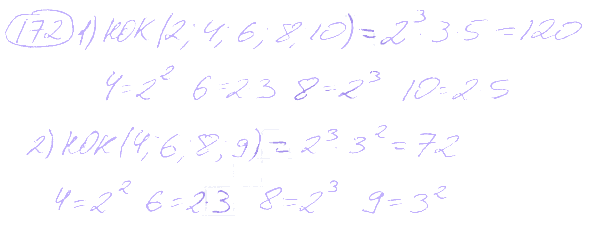 172 1) НОК(2; 4; 6; 8; 10) = 2³ · 3 · 5 = 120
4 = 2² 6 = 2 3 8 = 2³ 10 = 2 5
2) НОК(4; 6; 8; 9) = 2³ · 3² = 72
4 = 2² 6 = 2 · 3 8 = 2³ 9 = 3²